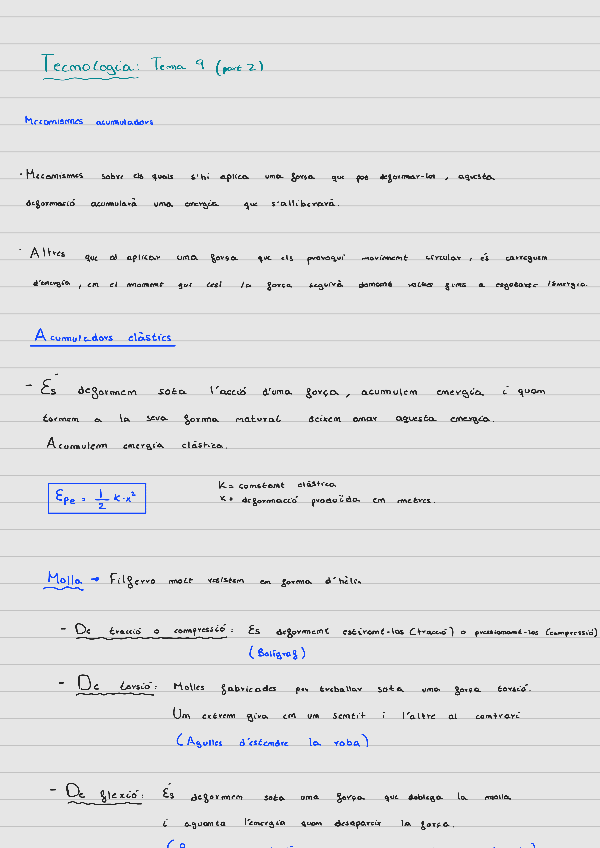 Tecnologia: Tema 9 (part 2)
Mecanismes acumuladors
· Mecanismes sobre els quals s'hi aplica una força que pot deformar-los, aquesta
deformació acumularà una energia que s'alliberarà.
· Altres que al aplicar una força que els provoqui moviment circular, es carreguem
d'energia, en el moment que cesi la força seguirà donant voltes fins a esgotarse l'energia.
Acumuladors elàstics
- Es deformem sota l'acció d'una força, acumulem energia i quan
tornem a la seva forma natural deixem anar aquesta energia.
Acumulem energia elàstica.
Epe = 1/2 K·x² K = constant elàstica
x = deformació produïda en metres.
Molla → Filferro molt resistem en forma d'hèlix
- De tracció o compressió: Es deformemt estirant-los (tracció) o pressionant-los (compressió)
(Bolígraf)
- De torsió: Molles fabricades per treballar sota una força torsió.
Un extrem gira en un sentit i l'altre al contrari
(Agulles d'estendre la roba)
- De flexió: Es deformem sota una força que doblega la molla
i aguanta l'energia quan desapareix la força.